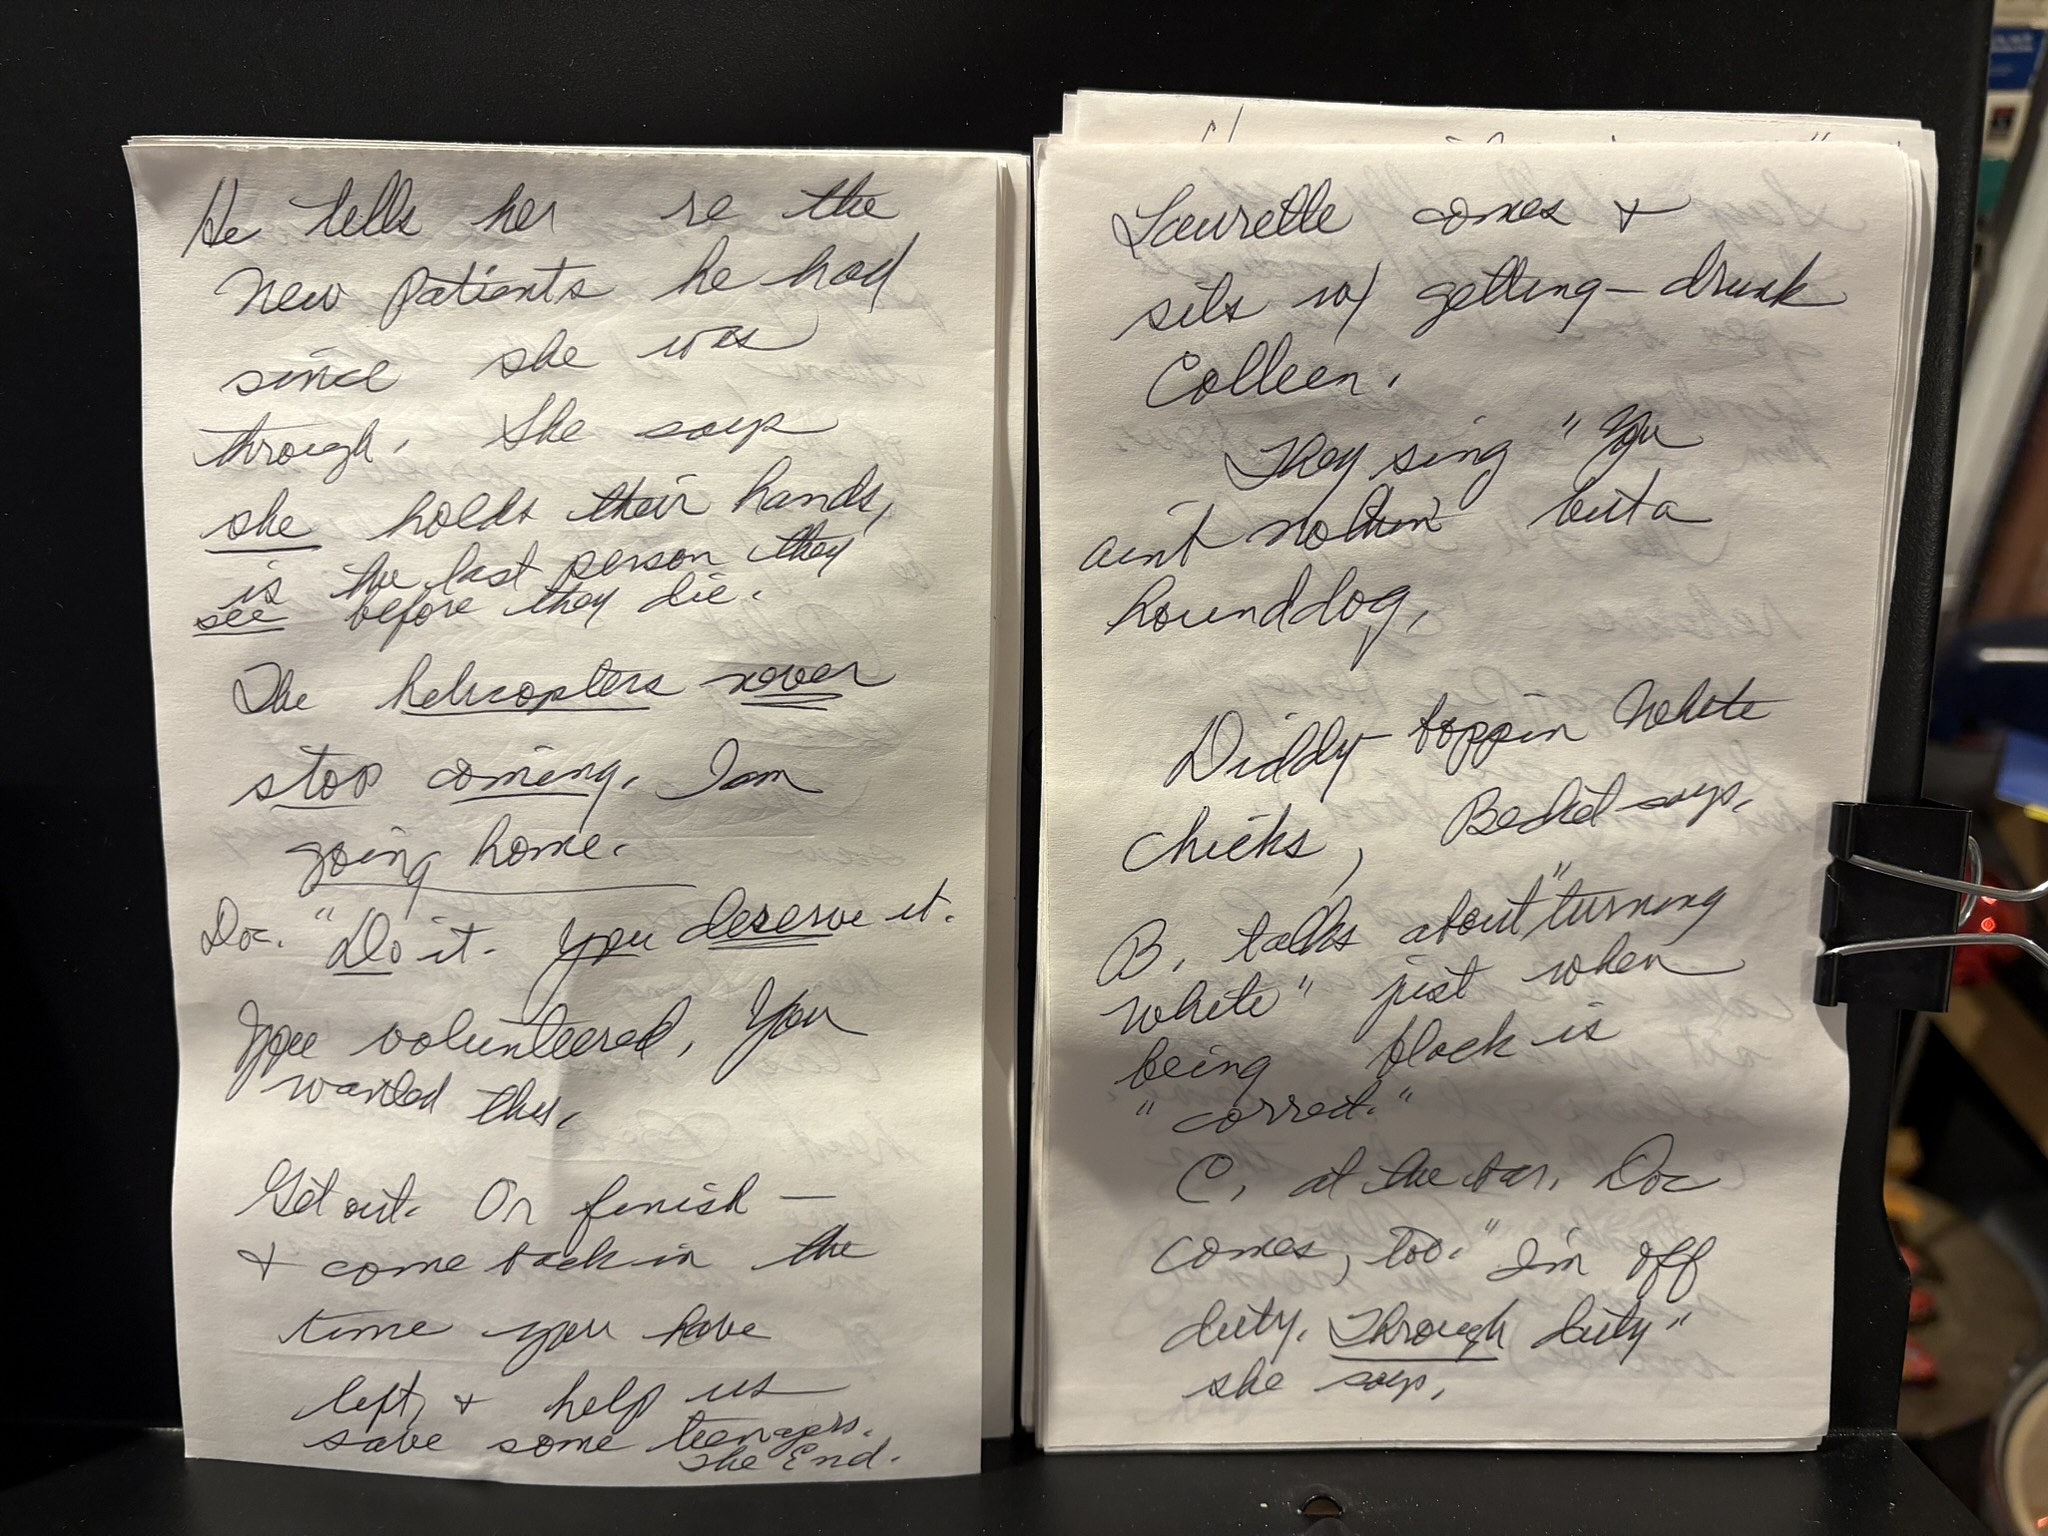 He tells her re the
new patients he had
since she was
through. She says
she holds their hands,
is the last person they
see before they die.
The helicopters never
stop coming. I am
going home.
Doc. "Do it. You deserve it.
You volunteered, You
wanted this.
Get out. Or finish —
+ come back in the
time you have
left, + help us
save some teenagers.
The End.
Laurette comes +
sits w/ getting-drunk
Colleen.
They sing "You
ain't nothin' but a
hounddog,
Diddy boppin White
chicks, Becket says.
B. talks about "turning
white" just when
being black is
"correct."
C. at the bar. Doc
comes, too. "I'm off
duty. Through duty"
she says.